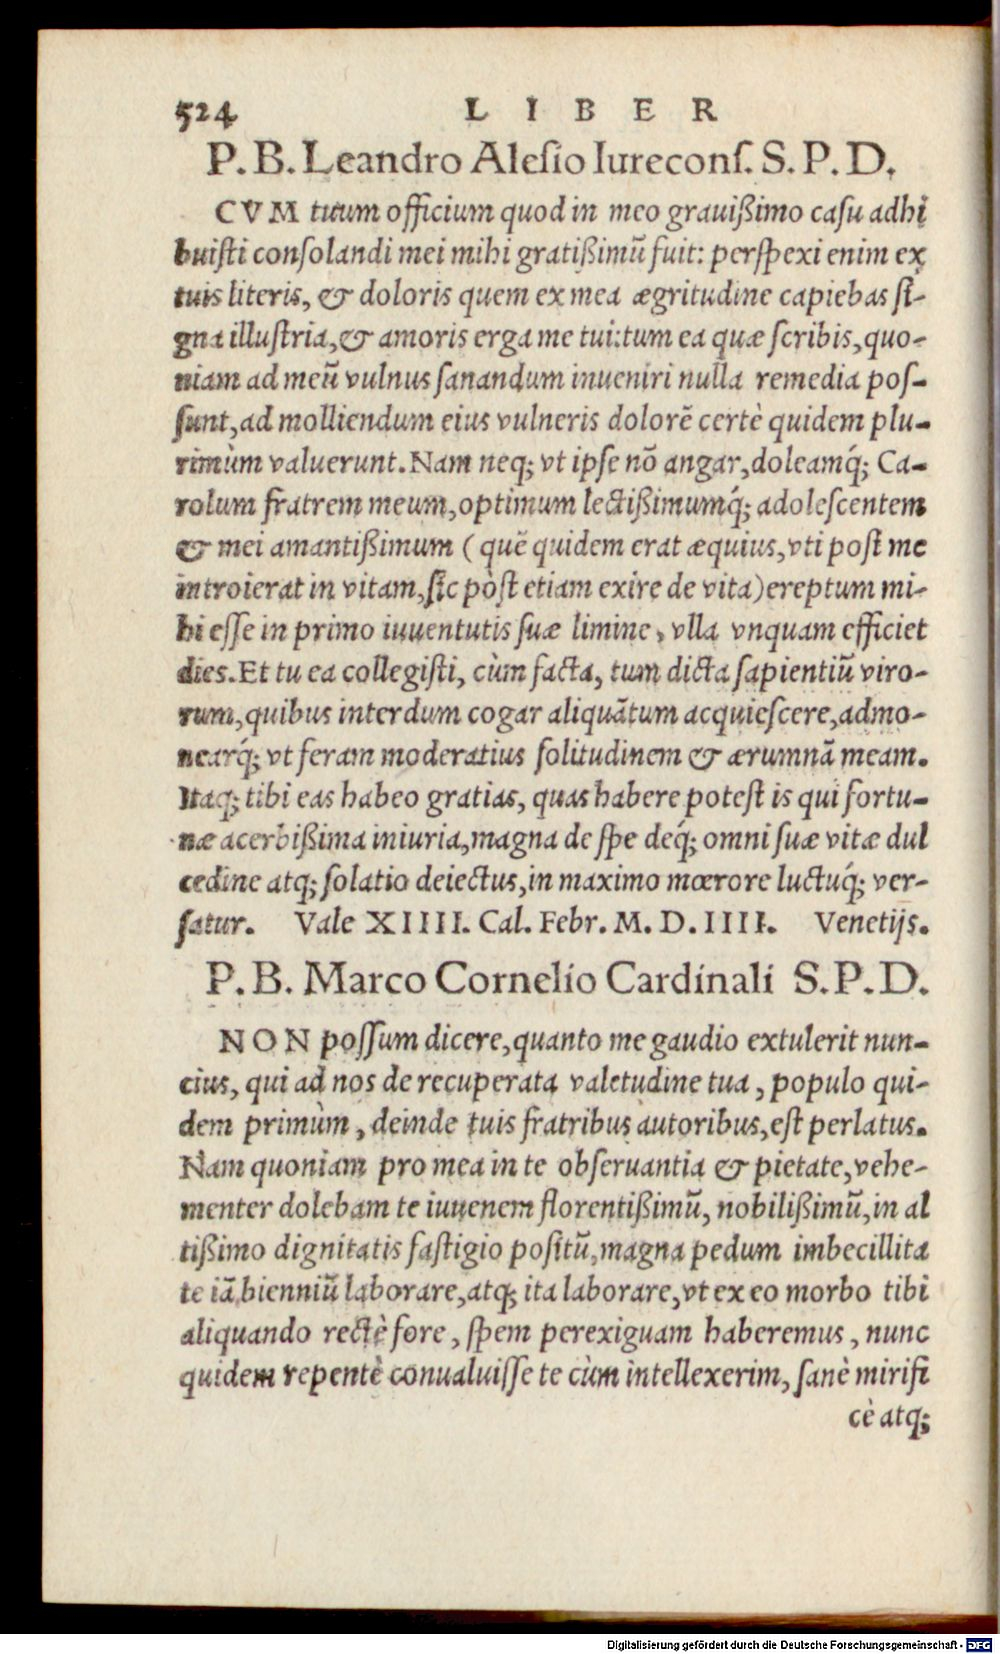 524 LIBER
P. B. Leandro Alesio Iurecons. S. P. D.
CVM tuum officium quod in meo grauißimo casu adhi
buisti consolandi mei mihi gratißimū fuit: perspexi enim ex
tuis literis, & doloris quem ex mea ægritudine capiebas si-
gna illustria, & amoris erga me tui: tum ea quæ scribis, quo-
niam ad meū vulnus sanandum inueniri nulla remedia pos-
sunt, ad molliendum eius vulneris dolorē certè quidem plu-
rimùm valuerunt. Nam neq; vt ipse nō angar, doleamq́; Ca-
rolum fratrem meum, optimum lectißimumq́; adolescentem
& mei amantißimum (quē quidem erat æquius, vti post me
introierat in vitam, sic pòst etiam exire de vita) ereptum mi-
hi esse in primo iuuentutis suæ limine, vlla vnquam efficiet
dies. Et tu ea collegisti, cùm facta, tum dicta sapientiū viro-
rum, quibus interdum cogar aliquātum acquiescere, admo-
nearq́; vt feram moderatius solitudinem & ærumnā meam.
Itaq; tibi eas habeo gratias, quas habere potest is qui fortu-
næ acerbißima iniuria, magna de spe deq́; omni suæ vitæ dul
cedine atq; solatio deiectus, in maximo mœrore luctuq́; ver-
satur. Vale XIIII. Cal. Febr. M. D. IIII. Venetijs.
P. B. Marco Cornelio Cardinali S. P. D.
NON possum dicere, quanto me gaudio extulerit nun-
cius, qui ad nos de recuperata valetudine tua, populo qui-
dem primùm, deinde tuis fratribus autoribus, est perlatus.
Nam quoniam pro mea in te obseruantia & pietate, vehe-
menter dolebam te iuuenem florentißimū, nobilißimū, in al
tißimo dignitatis fastigio positū, magna pedum imbecillita
te iā bienniū laborare, atq; ita laborare, vt ex eo morbo tibi
aliquando rectè fore, spem perexiguam haberemus, nunc
quidem repentè conualuisse te cùm intellexerim, sanè mirifi
cè atq;
Digitalisierung gefördert durch die Deutsche Forschungsgemeinschaft - DFG